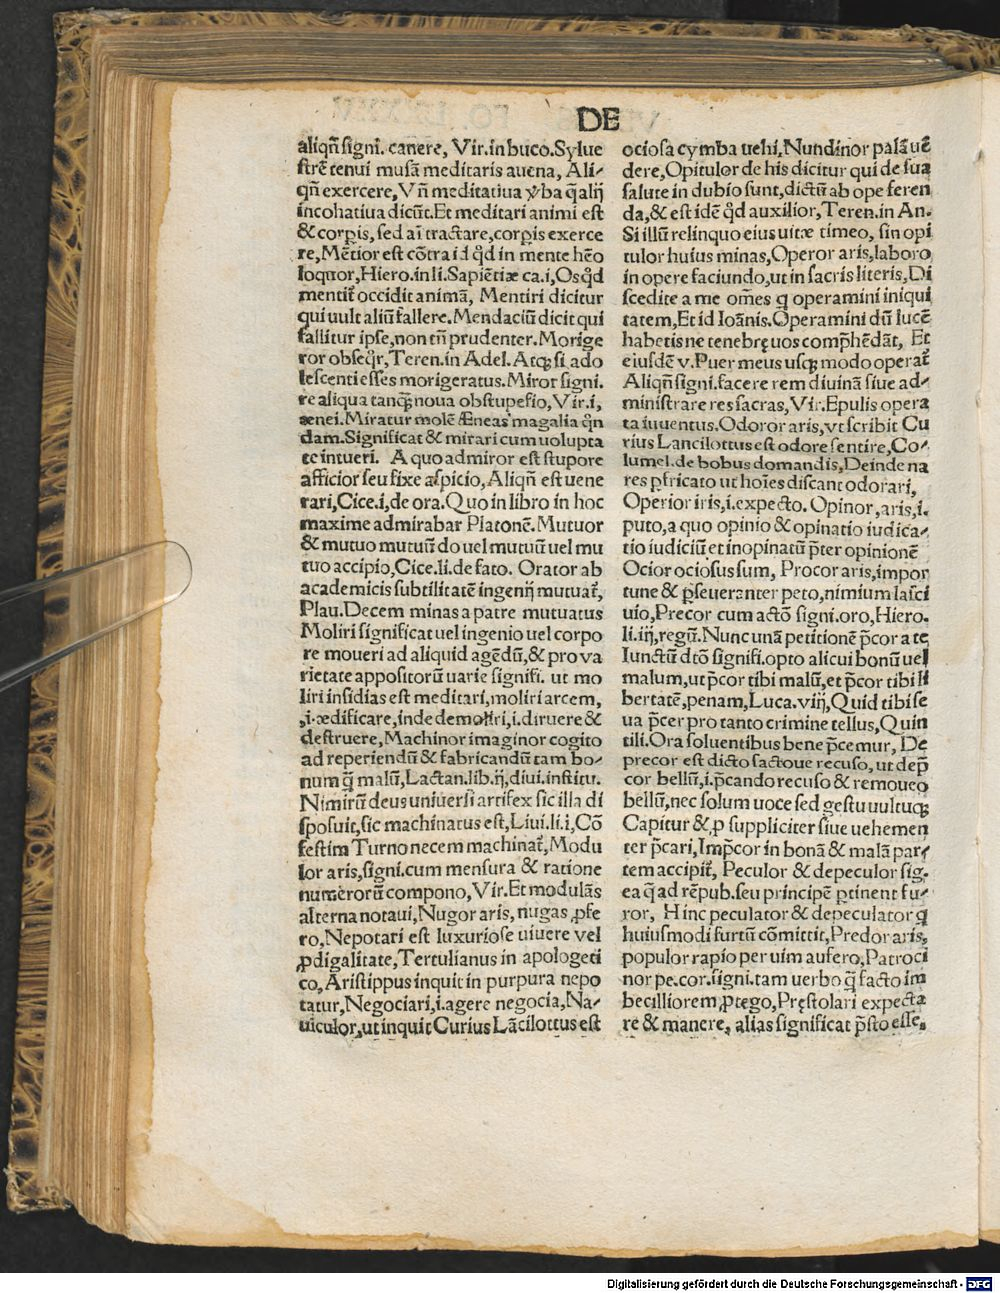 DE
aliqñ signi. canere, Vir. in buco. Sylue
strē tenui musā meditaris auena, Ali-
qñ exercere, Vñ meditatiua ỹba q̃alij
incohatiua dicūt. Et meditari animi est
& corpis, sed aĩ tractare, corpis exerce
re, Mētior est cōtra id q̊d in mente hēo
loquor, Hiero. in li. Sapiētiæ ca. i, Os q̊d
mentiť occidit animā, Mentiri dicitur
qui uult aliū fallere. Mendaciū dicit qui
fallitur ipse, non tñ prudenter. Morige
ror obseq̃r, Teren. in Adel. Atqȝ si ado
lescenti esses morigeratus. Miror signi.
re aliqua tanqȝ noua obstupesio, Vir. i,
ænei. Miratur molē Æneas magalia q̃n
dam. Significat & mirari cum uolupta
te intueri. A quo admiror est stupore
afficior seu fixe aspicio, Aliqñ est uene
rari, Cice. i, de ora. Quo in libro in hoc
maxime admirabar Platonē. Mutuor
& mutuo mutuū do uel mutuū uel mu
tuo accipio, Cice. li. de fato. Orator ab
academicis subtilitatē ingenij mutuať,
Plau. Decem minas a patre mutuatus
Moliri significat uel ingenio uel corpo
re moueri ad aliquid agēdū, & pro va
rietate appositorū uarie signifi. ut mo
liri insidias est meditari, moliri arcem,
.i. ædificare, inde demoliri, i. diruere &
destruere, Machinor imaginor cogito
ad reperiendū & fabricandū tam bo-
num q̄ malū, Lactan. lib. ij, diui. institu.
Nimirū deus uniuersi artifex sic illa di
sposuit, sic machinatus est, Liui. li. i, Cō
festim Turno necem machinať, Modu
lor aris, signi. cum mensura & ratione
numerorū compono, Vir. Et modulās
alterna notaui, Nugor aris, nugas ꝓfe
ro, Nepotari est luxuriose uiuere vel
ꝓdigalitate, Tertulianus in apologeti
co, Aristippus inquit in purpura nepo
tatur, Negociari, i. agere negocia, Na-
uiculor, ut inquit Curius Lācilottus est
ociosa cymba uehi, Nundinor palā uē
dere, Opitulor de his dicitur qui de sua
salute in dubio sunt, dictū ab ope feren
da, & est idē q̊d auxilior, Teren. in An.
Si illū relinquo eius uitæ timeo, sin opi
tulor huius minas, Operor aris, laboro
in opere faciundo, ut in sacris literis, Di
scedite a me omēs q̃ operamini iniqui
tatem, Et id Ioānis. Operamini dū lucē
habetis ne tenebrę uos comp̄hēdāt, Et
eiusdē v. Puer meus usqȝ modo operať
Aliqñ signi. facere rem diuinā siue ad-
ministrare res sacras, Vir. Epulis opera
ta iuuentus. Odoror aris, vt scribit Cu
rius Lancilottus est odore sentire, Co-
lumel. de bobus domandis, Deinde na
res pfricato ut hoīes discant odorari,
Operior iris, i. expecto. Opinor, aris, i.
puto, a quo opinio & opinatio iudica-
tio iudiciū et inopinatū p̄ter opinionē
Ocior ociosus sum, Procor aris, impor
tune & pseueranter peto, nimium lasci
uio, Precor cum actō signi. oro, Hiero.
li. iij, regū. Nunc unā petitionē p̄cor a te
Iunctū dtō signifi. opto alicui bonū uel
malum, ut p̄cor tibi malū, et p̄cor tibi li
bertatē, penam, Luca. viij, Quid tibi se
ua p̄cer pro tanto crimine tellus, Quin
tili. Ora soluentibus bene p̄cemur, De
precor est dicto factoue recuso, ut dep̄
cor bellū, i. p̄cando recuso & remoueo
bellū, nec solum uoce sed gestu uultuqȝ
Capitur &, p suppliciter siue uehemen
ter p̄cari, Imp̄cor in bonā & malā par-
tem accipiť, Peculor & depeculor sig.
ea q̃ ad rēpub. seu principē ptinent fu-
ror, Hinc peculator & depeculator q̃
huiusmodi furtū cōmittit, Predor aris,
populor rapio per uim aufero, Patroci
nor pe. cor. signi. tam uerbo q̄ facto im
becilliorem ꝓtego, Pręstolari expecta
re & manere, alias significat p̄sto esse,
Digitalisierung gefördert durch die Deutsche Forschungsgemeinschaft - DFG